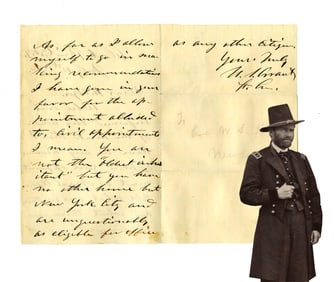 As far as I allow
myself to go in ma-
king recommendations
I have gone in your
favor for the ap-
pointment alluded
to, Civil appointments
I mean. You are
not the "oldest inhab
itant" but you have
no other home but
New York City and
are unquestionably
as eligible for office
as any other Citizen.
Yours Truly
U. S. Grant